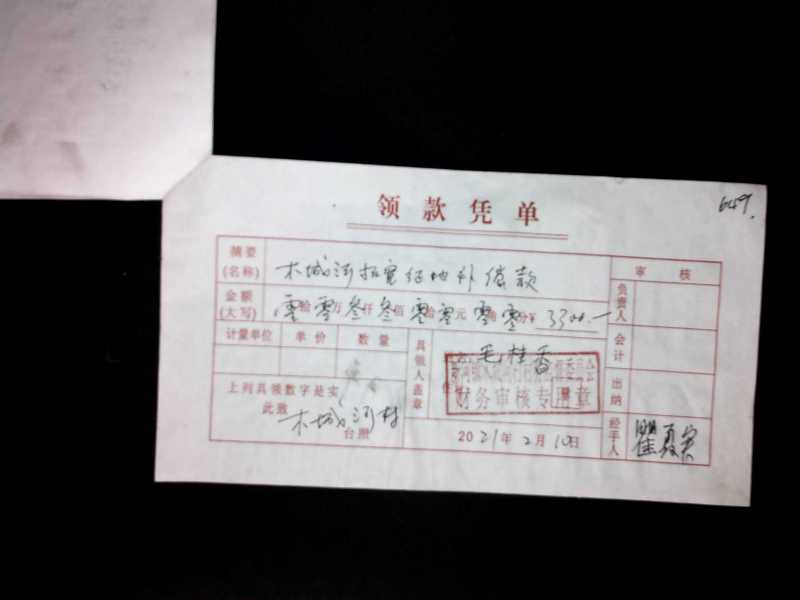 649.
领款凭单
摘要(名称) 木城河拓宽征地补偿款 审核
金额(大写) 零拾零万叁仟叁佰零拾零元零角零分¥3300.— 负责人
计量单位 单价 数量 具领人盖章 毛桂香 会计
财务审核专用章
上列具领数字是实 出纳
此致 木城河村 台照
2021年2月10日 经手人